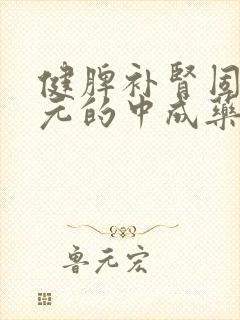 健脾补肾固
元的中成药
鲁元宏